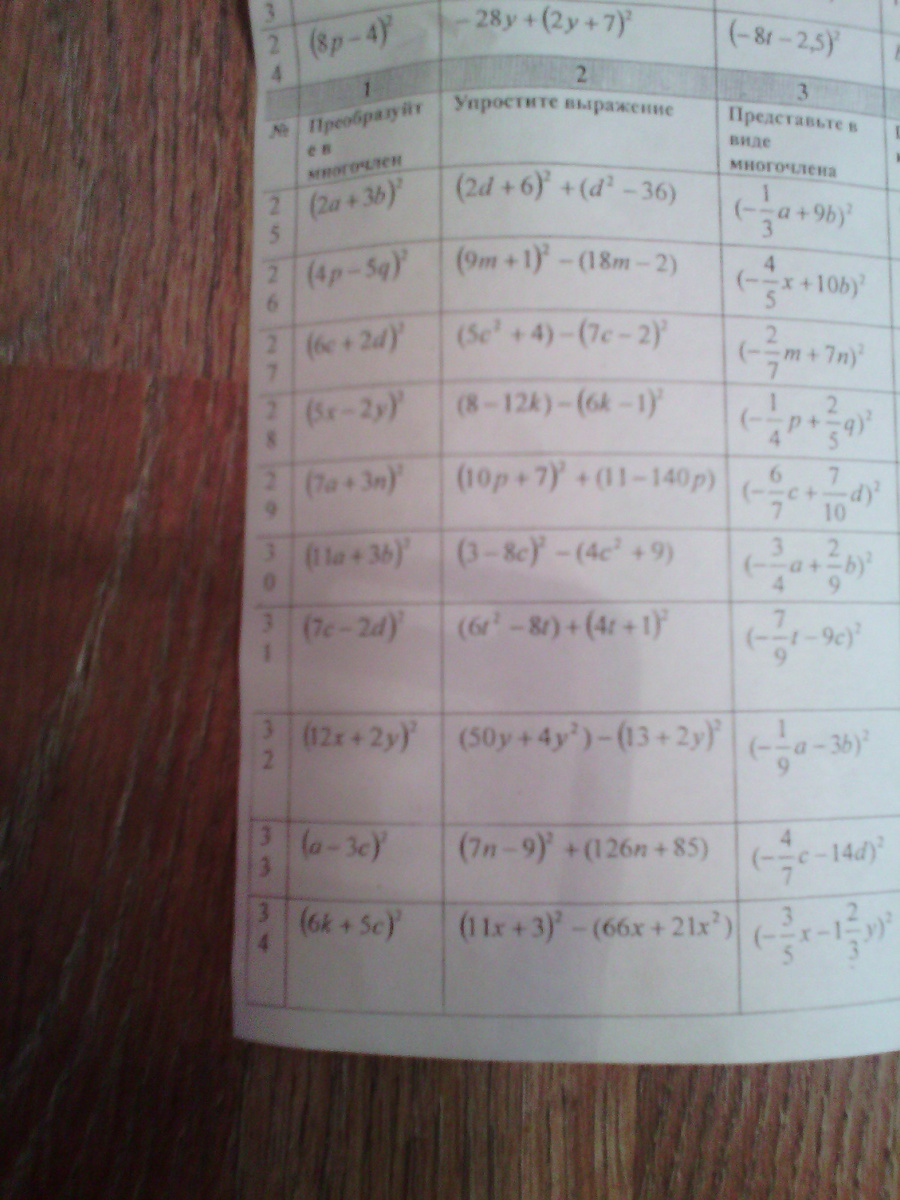 3
2
4 (8p − 4)² − 28y + (2y + 7)² (−8t − 2,5)²
1 2 3
№ Преобразуйт Упростите выражение Представьте в
е в виде
многочлен многочлена
2
5 (2a + 3b)² (2d + 6)² + (d² − 36) (−1/3 a + 9b)²
2
6 (4p − 5q)² (9m + 1)² − (18m − 2) (−4/5 x + 10b)²
2
7 (6c + 2d)² (5c² + 4) − (7c − 2)² (−2/7 m + 7n)²
2
8 (5x − 2y)² (8 − 12k) − (6k − 1)² (−1/4 p + 2/5 q)²
2
9 (7a + 3n)² (10p + 7)² + (11 − 140p) (−6/7 c + 7/10 d)²
3
0 (11a + 3b)² (3 − 8c)² − (4c² + 9) (−3/4 a + 2/9 b)²
3
1 (7c − 2d)² (6t² − 8t) + (4t + 1)² (−7/9 t − 9c)²
3
2 (12x + 2y)² (50y + 4y²) − (13 + 2y)² (−1/9 a − 3b)²
3
3 (a − 3c)² (7n − 9)² + (126n + 85) (−4/7 c − 14d)²
3
4 (6k + 5c)² (11x + 3)² − (66x + 21x²) (−3/5 x − 1 2/3 y)²